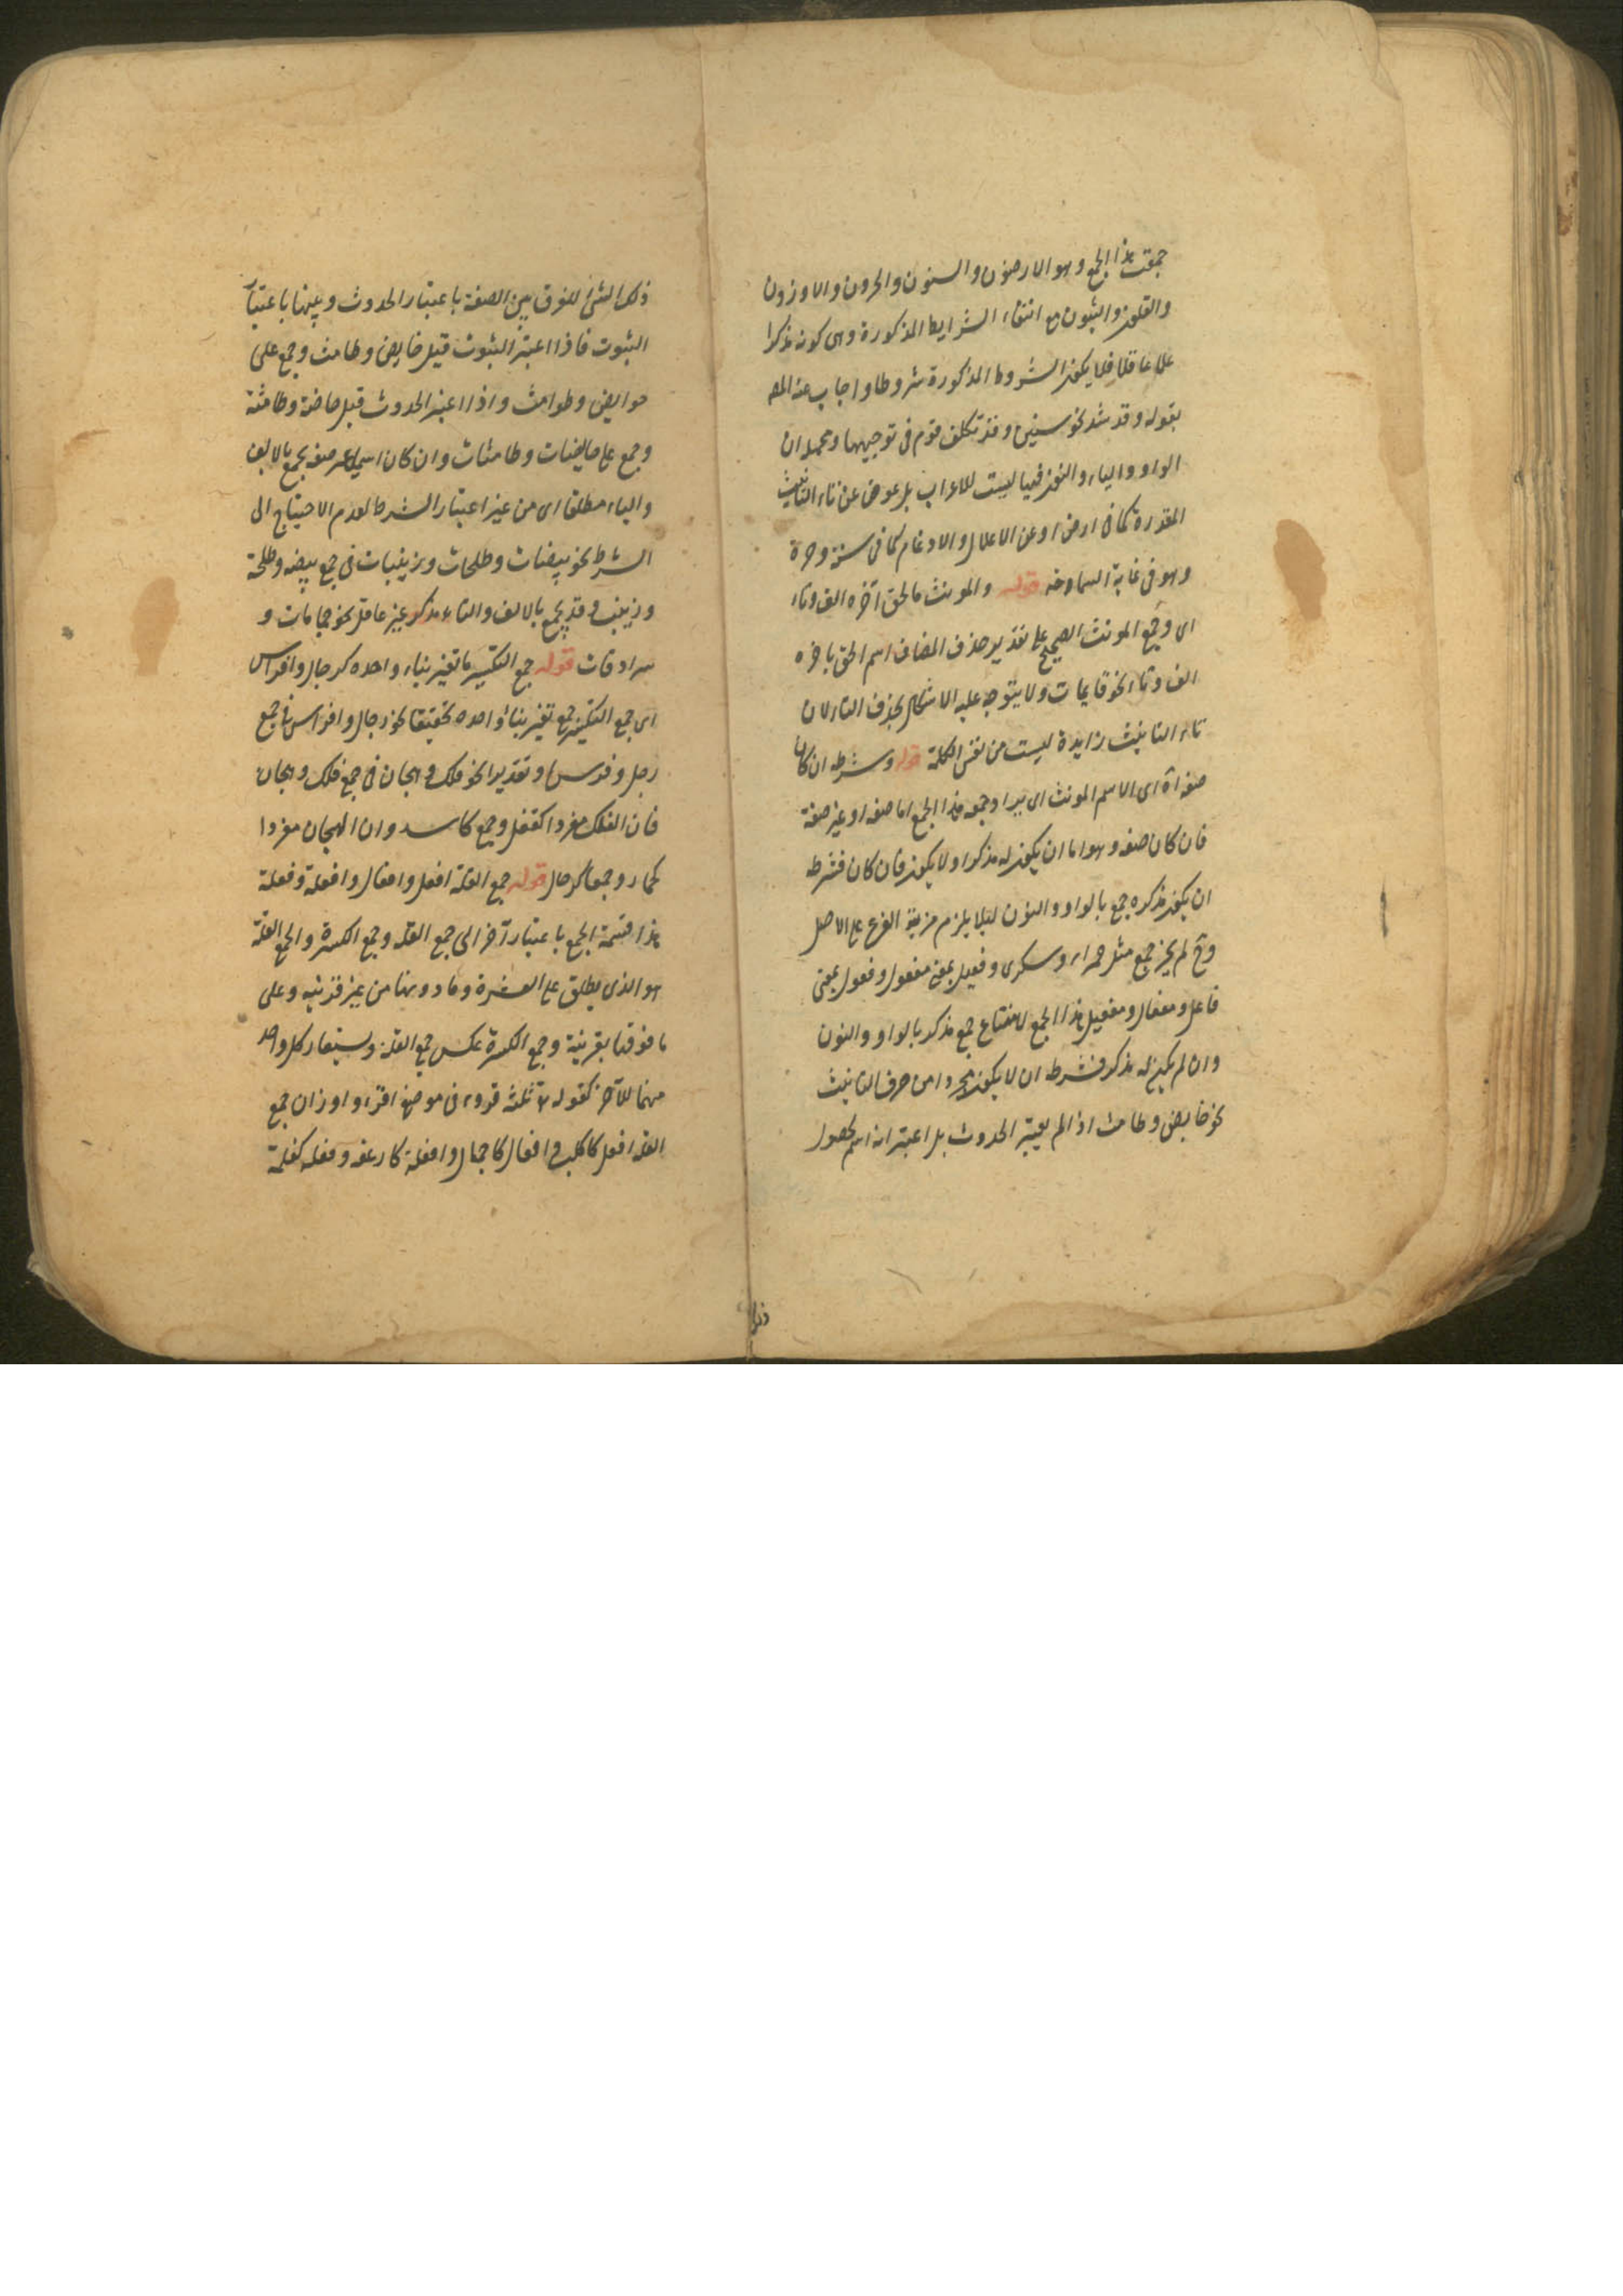 جمعت هذا الجمع وهو الارضون والسنون والحرون والاوزون
والقلون والثبون مع انتفاء الشرايط المذكورة وهى كونه مذكرا
علما عاقلا فلا يكون الشروط المذكورة شروطا واجاب عنه المص
بقوله وقد شد نحو سنين وقد تكلف قوم فى توجيهها ومجمله ان
الواو والياء والنون فيها ليست للاعراب بل عوض عن تاء التانيث
المقدرة كما فى ارض او عن الاعلال والادغام كما فى سنة وحرة
وهو فى غاية السماوجه قوله والمونث ما لحق آخره الف وتاء
اى وجمع المونث الصحيح على تقدير حذف المضاف اسم الحق باخره
الف وتاء نحو قايمات ولا يتوجه عليه الاشكال بحذف التاء لان
تاء التانيث زايدة ليست من نفس الكلمة قوله وشرطه ان كان
صفة اه اى الاسم المونث اى يراد جمعه هذا الجمع اما صفة او غير صفة
فان كان صفة وهو اما ان يكون له مذكر اولا يكون فان كان فشرطه
ان يكون مذكره جمع بالواو والنون ليلا يلزم مزية الفرع على الاصل
وح لم يجز جمع مثل حمراء وسكرى وفعيل بمعنى مفعول وفعول بمعنى
فاعل ومفعال ومفعيل هذا الجمع لامتناع جمع مذكر بالواو والنون
وان لم يكن له مذكر فشرطه ان لا يكون مجردا من حرف التانيث
نحو حايض وطامث اذا لم يعتبر الحدوث بل اعتبر انه اسم لحصول
ذلك
ذلك الشئ للفرق بين الصفة باعتبار الحدوث وبينها باعتبار
الثبوت فاذا اعتبر الثبوت قيل حايض وطامث وجمع على
حوايض وطوامث واذا اعتبر الحدوث قيل حاضة وطامثة
وجمع على حايضات وطامثات وان كان اسما غير صفة يجمع بالالف
والتاء مطلقا اى من غير اعتبار الشرط لعدم الاحتياج الى
الشرط نحو بيضات وطلحات وزينبات فى جمع بيضه وطلحة
وزينب وقد يجمع بالالف والتاء مذكر غير عاقل نحو حمامات و
سرادقات قوله جمع التكسير ما تغير بناء واحده كرجال وافراس
اى جمع التكسير جمع تغير بناؤ احده تحقيقا نحو رجال وافراس فى جمع
رجل وفرس او تقديرا نحو فلك وهجان فى جمع فلك وهجان
فان الفلك مفردا كقفل وجمع كاسد وان الهجان مفردا
كحمار وجمعا كرجال قوله جمع القلة افعل وافعال وافعلة وفعلة
هذا قسمة الجمع باعتبار آخر الى جمع القله وجمع الكثرة والجمع القلة
هو الذى يطلق على العشرة وما دونها من غير قرنيه وعلى
ما فوقها بقرنية وجمع الكثرة عكس جمع القلة وستعار كل واحد
منهما للآخر كقوله تعلى ثلثه قروء فى موضع اقراء واوزان جمع
القله افعل كاكلب وافعال كاجمال وافعلة كارغفه وفعله كغلمة